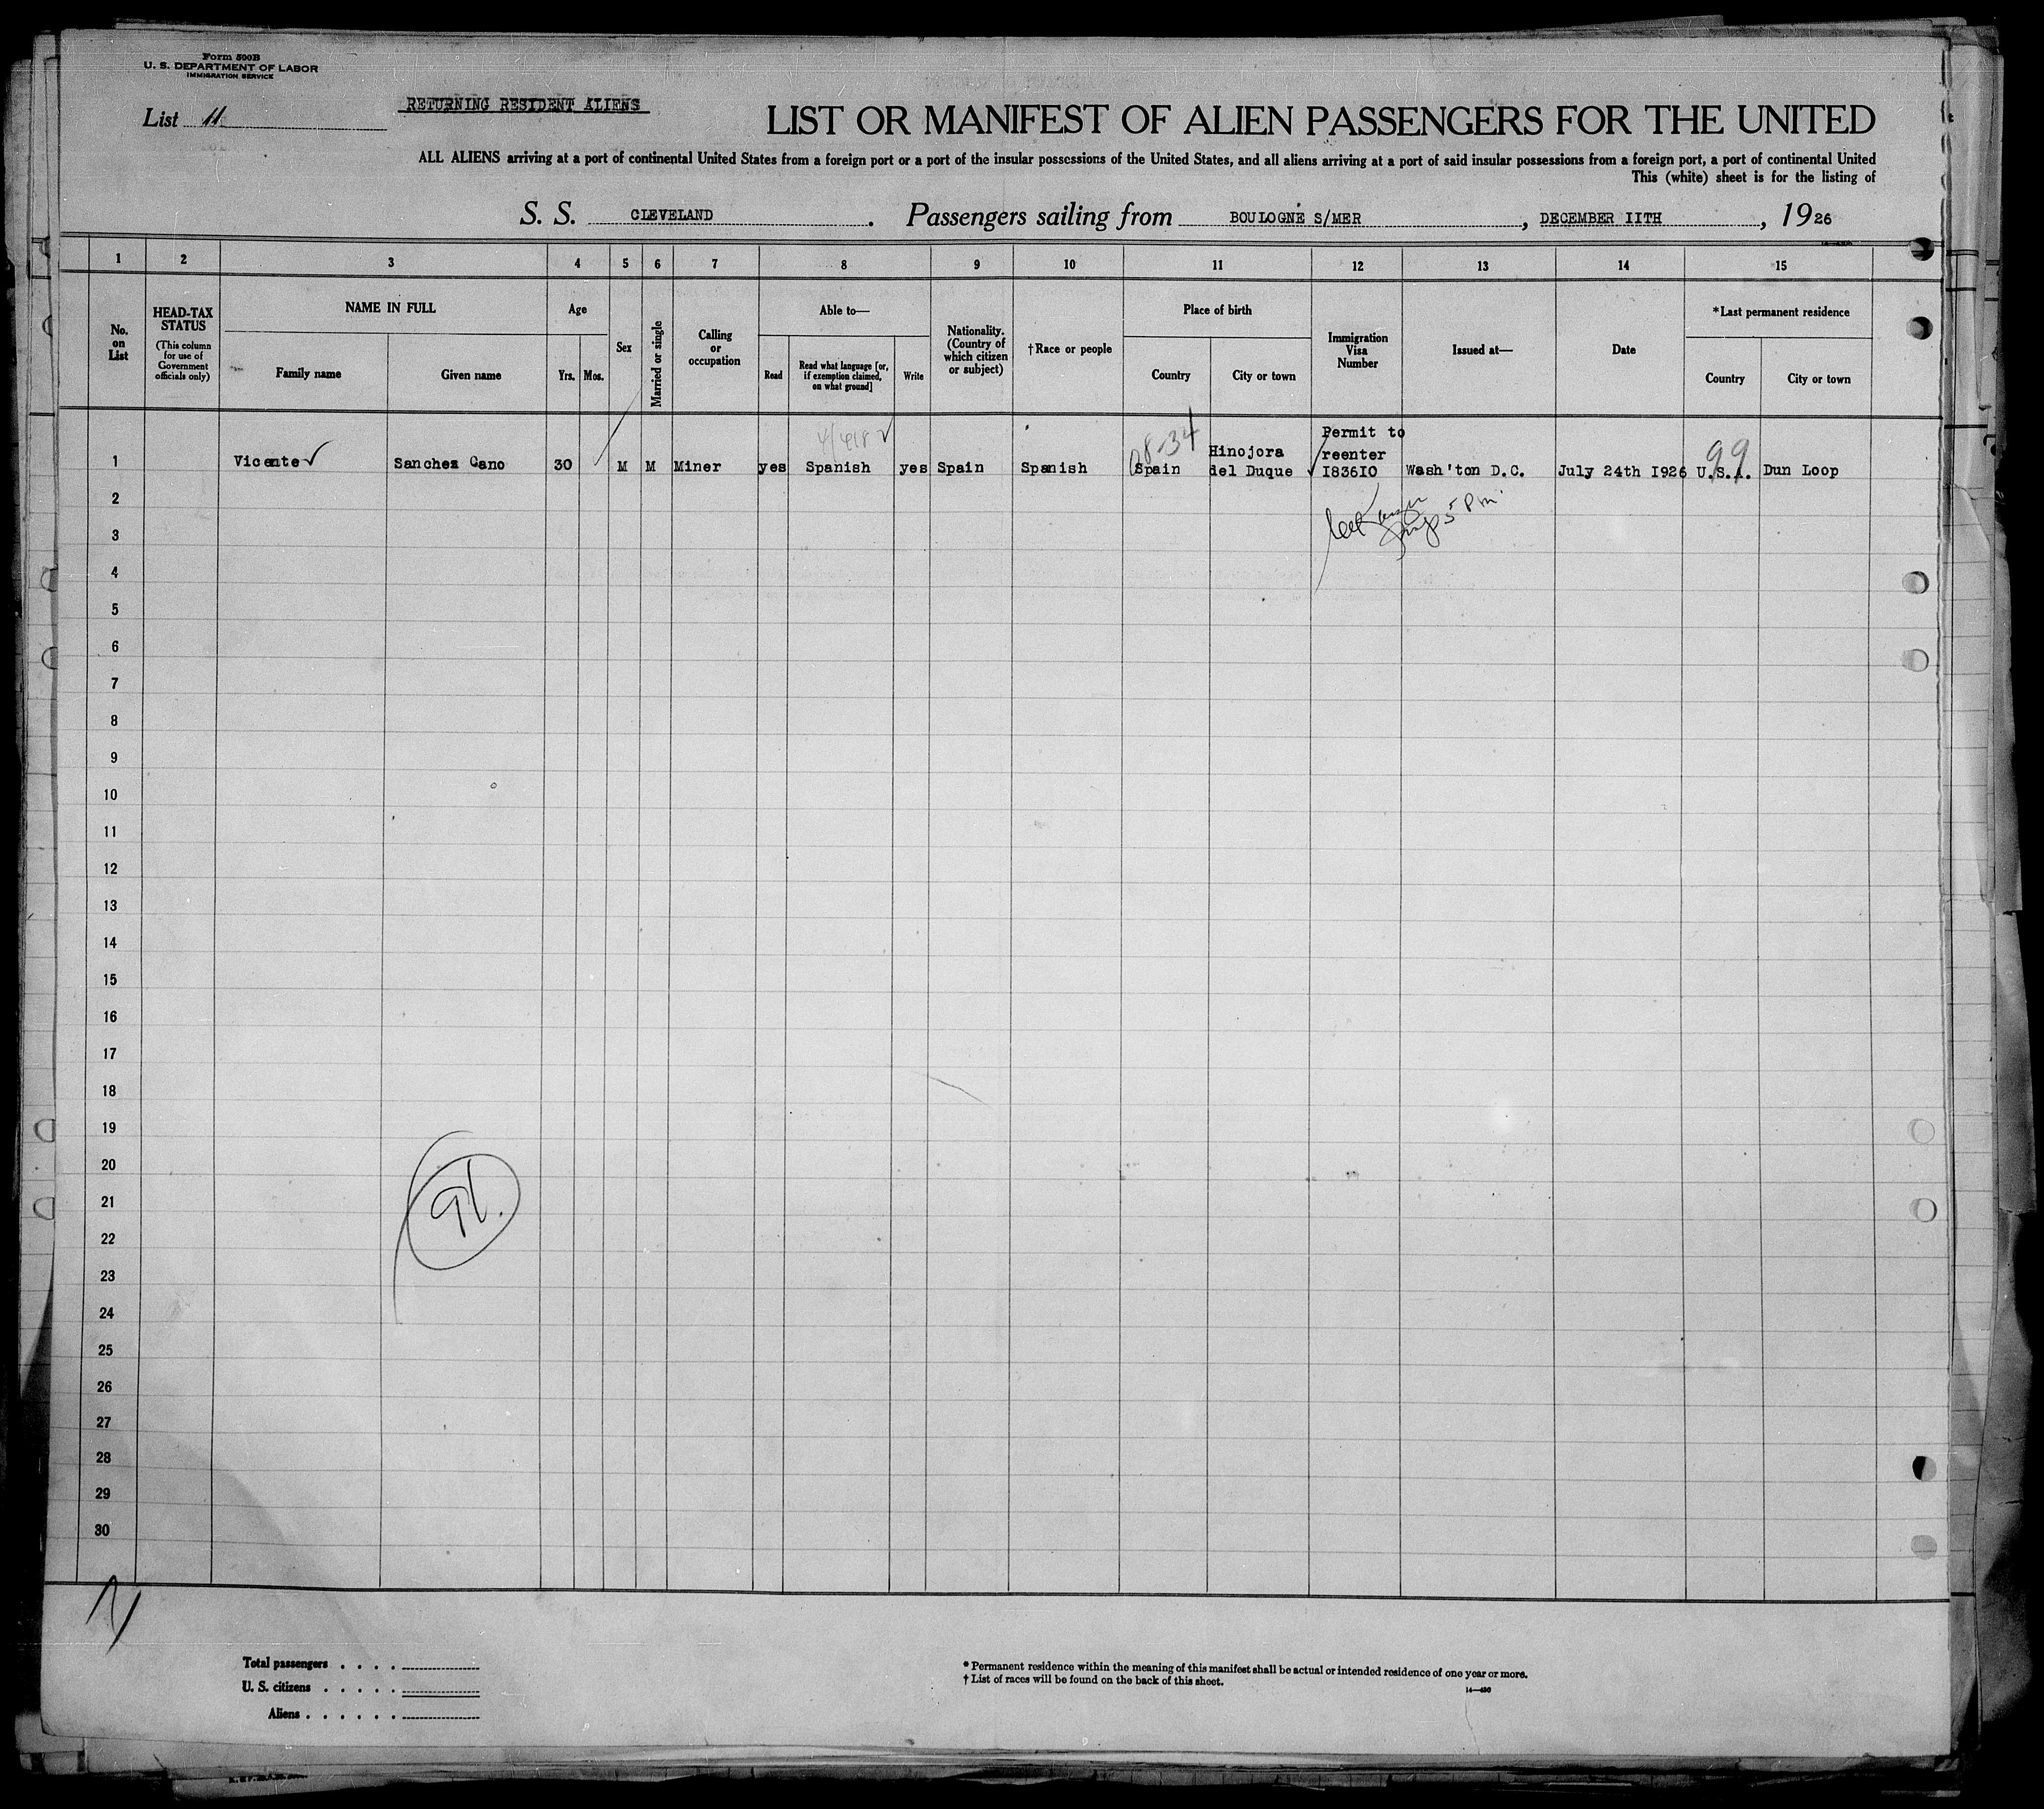 Form 500B
U. S. DEPARTMENT OF LABOR
IMMIGRATION SERVICE
List 11
RETURNING RESIDENT ALIENS
LIST OR MANIFEST OF ALIEN PASSENGERS FOR THE UNITED
ALL ALIENS arriving at a port of continental United States from a foreign port or a port of the insular possessions of the United States, and all aliens arriving at a port of said insular possessions from a foreign port, a port of continental United
This (white) sheet is for the listing of
S. S. CLEVELAND. Passengers sailing from BOULOGNE S/MER, DECEMBER IITH, 1926
1 2 3 4 5 6 7 8 9 10 11 12 13 14 15
No. on List
HEAD-TAX STATUS
(This column for use of Government officials only)
NAME IN FULL
Family name
Given name
Age
Yrs.
Mos.
Sex
Married or single
Calling or occupation
Able to—
Read
Read what language [or, if exemption claimed, on what ground]
Write
Nationality. (Country of which citizen or subject)
†Race or people
Place of birth
Country
City or town
Immigration Visa Number
Issued at—
Date
*Last permanent residence
Country
City or town
1 Vicente Sanchez Cano 30 M M Miner yes Spanish yes Spain Spanish Spain Hinojora del Duque Permit to reenter I836I0 Wash'ton D.C. July 24th I926 U.S.A. Dun Loop
99
5 Pm.
2
3
4
5
6
7
8
9
10
11
12
13
14
15
16
17
18
19
20
21
22
23
24
25
26
27
28
29
30
91.
Total passengers . . . .
U. S. citizens . . . . .
Aliens . . . . . .
* Permanent residence within the meaning of this manifest shall be actual or intended residence of one year or more.
† List of races will be found on the back of this sheet.
14—430